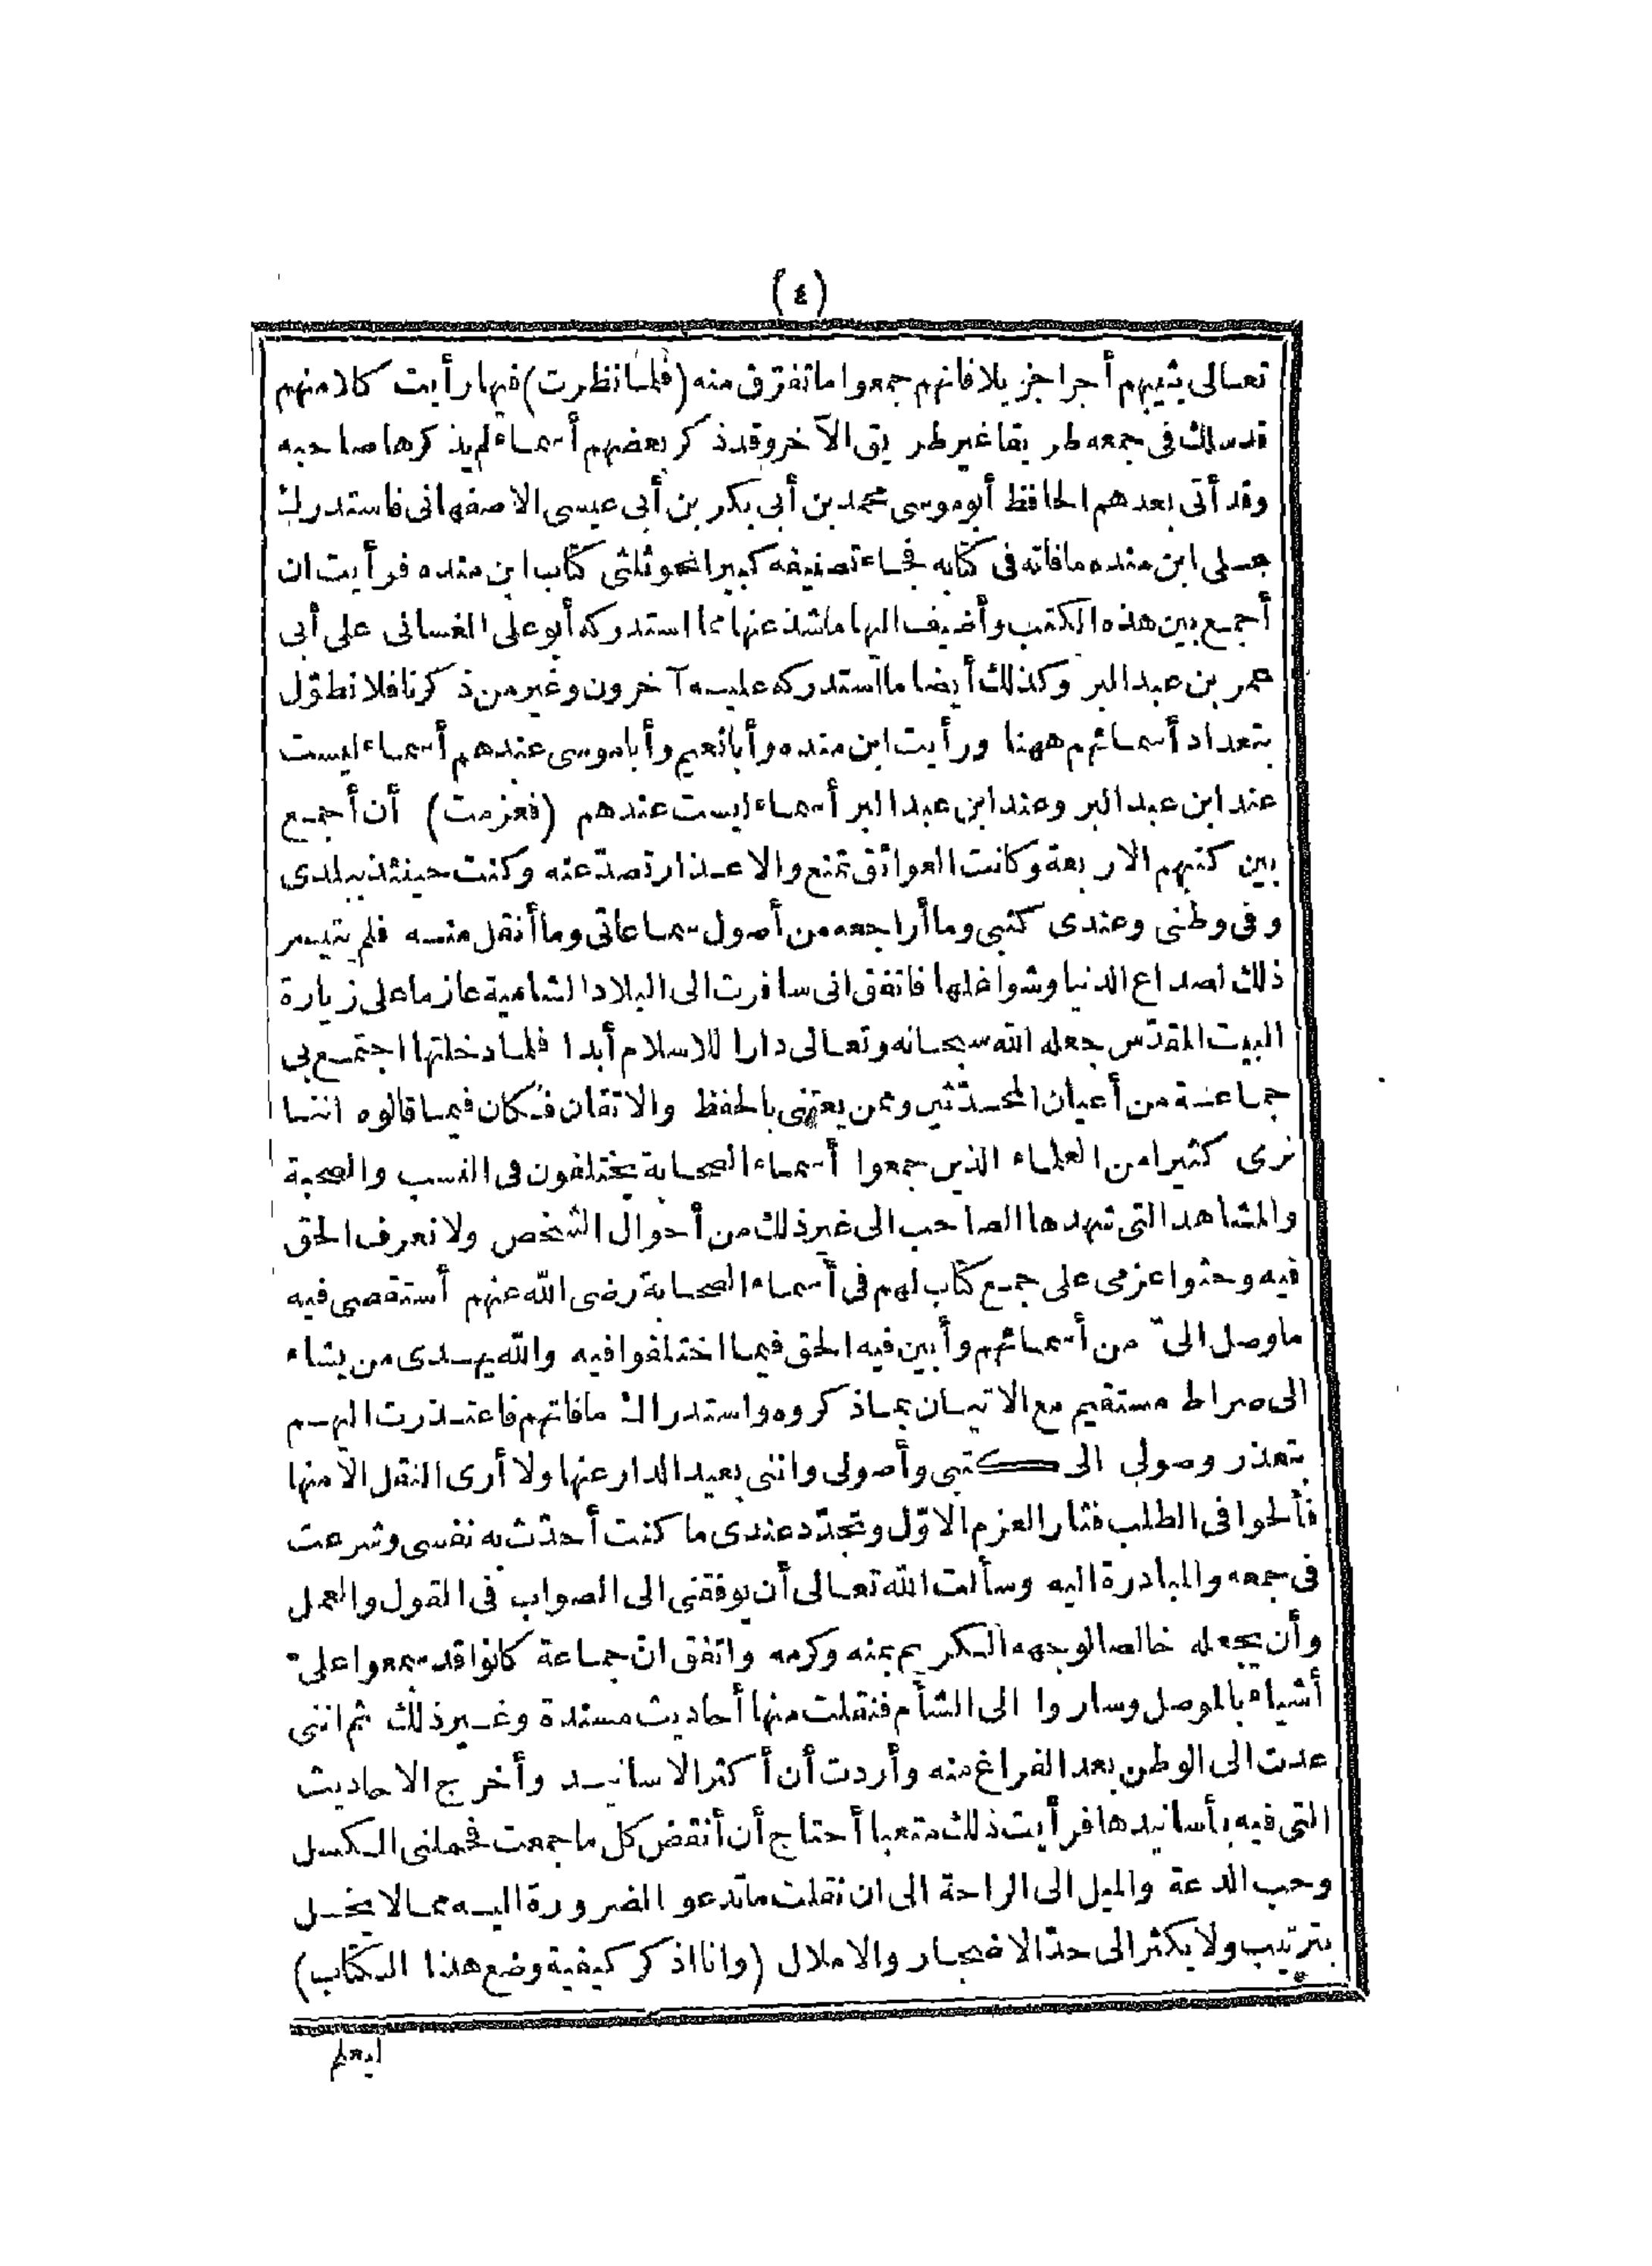 (٤)
تعالى يثيبهم أجرا جزيلا فانهم جمعوا ما تفرق منه (فلما نظرت) فيها رأيت كلا منهم
قد سلك فى جمعه طريقا غير طريق الآخر وقد ذكر بعضهم أسماء لم يذكرها صاحبه
وقد أتى بعدهم الحافظ أبو موسى محمد بن أبى بكر بن أبى عيسى الاصفهانى فاستدرك
على ابن منده ما فاته فى كتابه فجاء تصنيفه كبيرا نحو ثلثى كتاب ابن منده فرأيت ان
أجمع بين هذه الكتب وأضيف اليها ما شذ عنها مما استدركه أبو على الغسانى على أبى
عمر بن عبد البر وكذلك أيضا ما استدركه عليه آخرون وغير من ذكرنا فلا نطوّل
بتعداد أسمائهم ههنا ورأيت ابن منده وأبا نعيم وأبا موسى عندهم أسماء ليست
عند ابن عبد البر وعند ابن عبد البر أسماء ليست عندهم (فعزمت) أن أجمع
بين كتبهم الاربعة وكانت العوائق تمنع والاعذار تصدّ عنه وكنت حينئذ ببلدى
وفى وطنى وعندى كتبى وما أراجعه من أصول سماعاتى وما أنقل منه فلم يتيسر
ذلك لصداع الدنيا وشواغلها فاتفق انى سافرت الى البلاد الشامية عازما على زيارة
البيت المقدّس جعله الله سبحانه وتعالى دارا للاسلام أبدا فلما دخلتها اجتمع بى
جماعة من أعيان المحدّثين وممن يعتنى بالحفظ والاتقان فكان فيما قالوه اننا
نرى كثيرا من العلماء الذين جمعوا أسماء الصحابة يختلفون فى النسب والصحبة
والمشاهد التى شهدها الصاحب الى غير ذلك من أحوال الشخص ولا نعرف الحق
فيه وحثوا عزمى على جمع كتاب لهم فى أسماء الصحابة رضى الله عنهم أستقصى فيه
ما وصل الىّ من أسمائهم وأبين فيه الحق فيما اختلفوا فيه والله يهدى من يشاء
الى صراط مستقيم مع الاتيان بما ذكروه واستدراك ما فاتهم فاعتذرت اليهم
بتعذر وصولى الى كتبى وأصولى واننى بعيد الدار عنها ولا أرى النقل الا منها
فألحوا فى الطلب فثار العزم الاوّل وتجدّد عندى ما كنت أحدّث به نفسى وشرعت
فى جمعه والمبادرة اليه وسألت الله تعالى أن يوفقنى الى الصواب فى القول والعمل
وأن يجعله خالصا لوجهه الكريم بمنه وكرمه واتفق انّ جماعة كانوا قد سمعوا علىّ
أشياء بالموصل وساروا الى الشأم فنقلت منها أحاديث مسندة وغير ذلك ثم اننى
عدت الى الوطن بعد الفراغ منه وأردت أن أكثر الاسانيد وأخرج الاحاديث
التى فيه بأسانيدها فرأيت ذلك متعبا أحتاج أن أنقض كل ما جمعت فحملنى الكسل
وحب الدعة والميل الى الراحة الى ان نقلت ما تدعو الضرورة اليه مما لا يخل
بترتيب ولا يكثر الى حدّ الاضجار والاملال (وانا اذكر كيفية وضع هذا الكتاب)
ليعلم